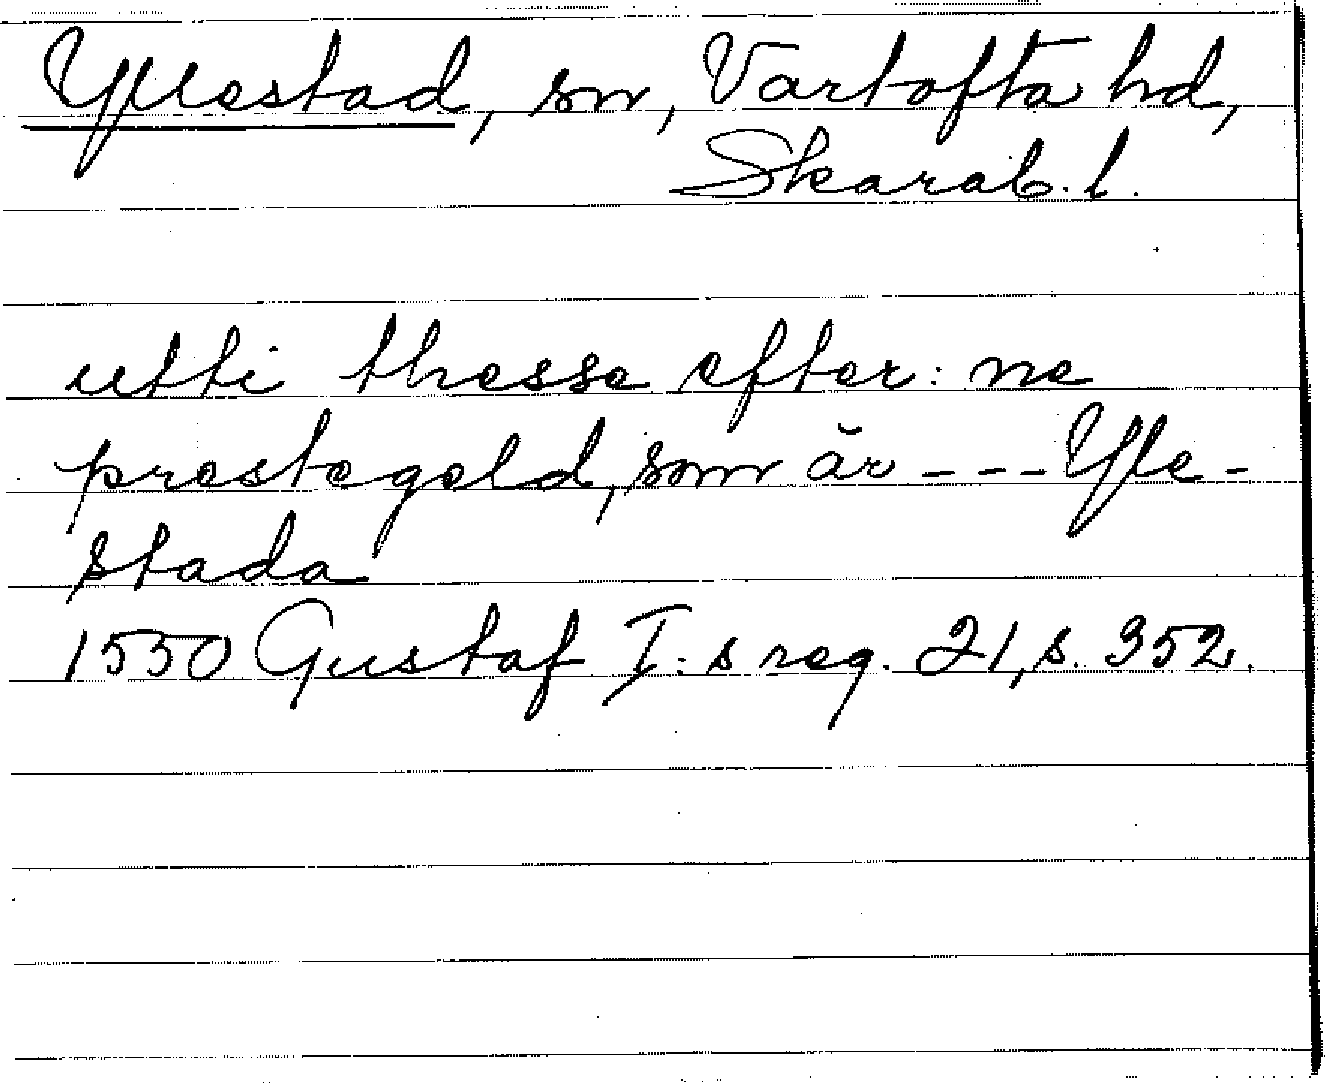 Yllestad, sn, Vartofta hd,
Skarab. l.
utti thesse efter: ne
prestegeld, som är --- Yle-
stada
1550 Gustaf I: s reg. 21, s. 352.